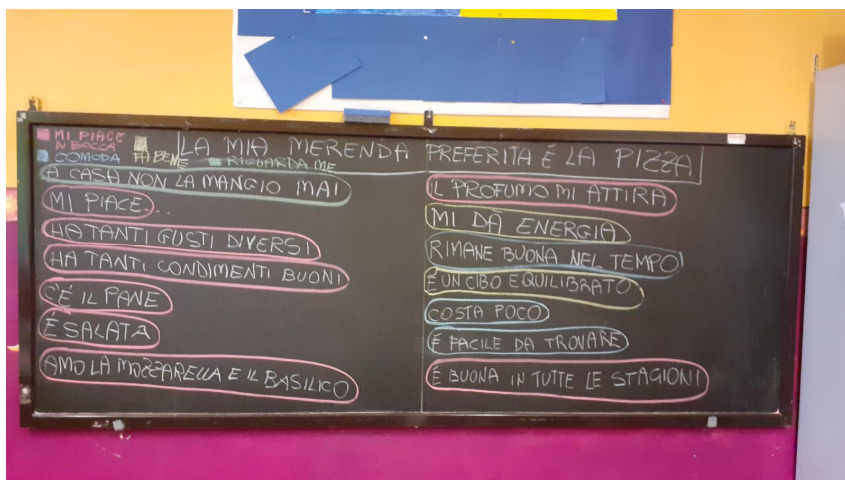 MI PIACE
N BOCCA
COMODA FA BENE
RIGUARDA ME
LA MIA MERENDA PREFERITA É LA PIZZA
A CASA NON LA MANGIO MAI
MI PIACE...
HA TANTI GUSTI DIVERSI
HA TANTI CONDIMENTI BUONI
C'É IL PANE
É SALATA
AMO LA MOZZARELLA E IL BASILICO
IL PROFUMO MI ATTIRA
MI DA ENERGIA
RIMANE BUONA NEL TEMPO
É UN CIBO EQUILIBRATO
COSTA POCO
É FACILE DA TROVARE
É BUONA IN TUTTE LE STAGIONI